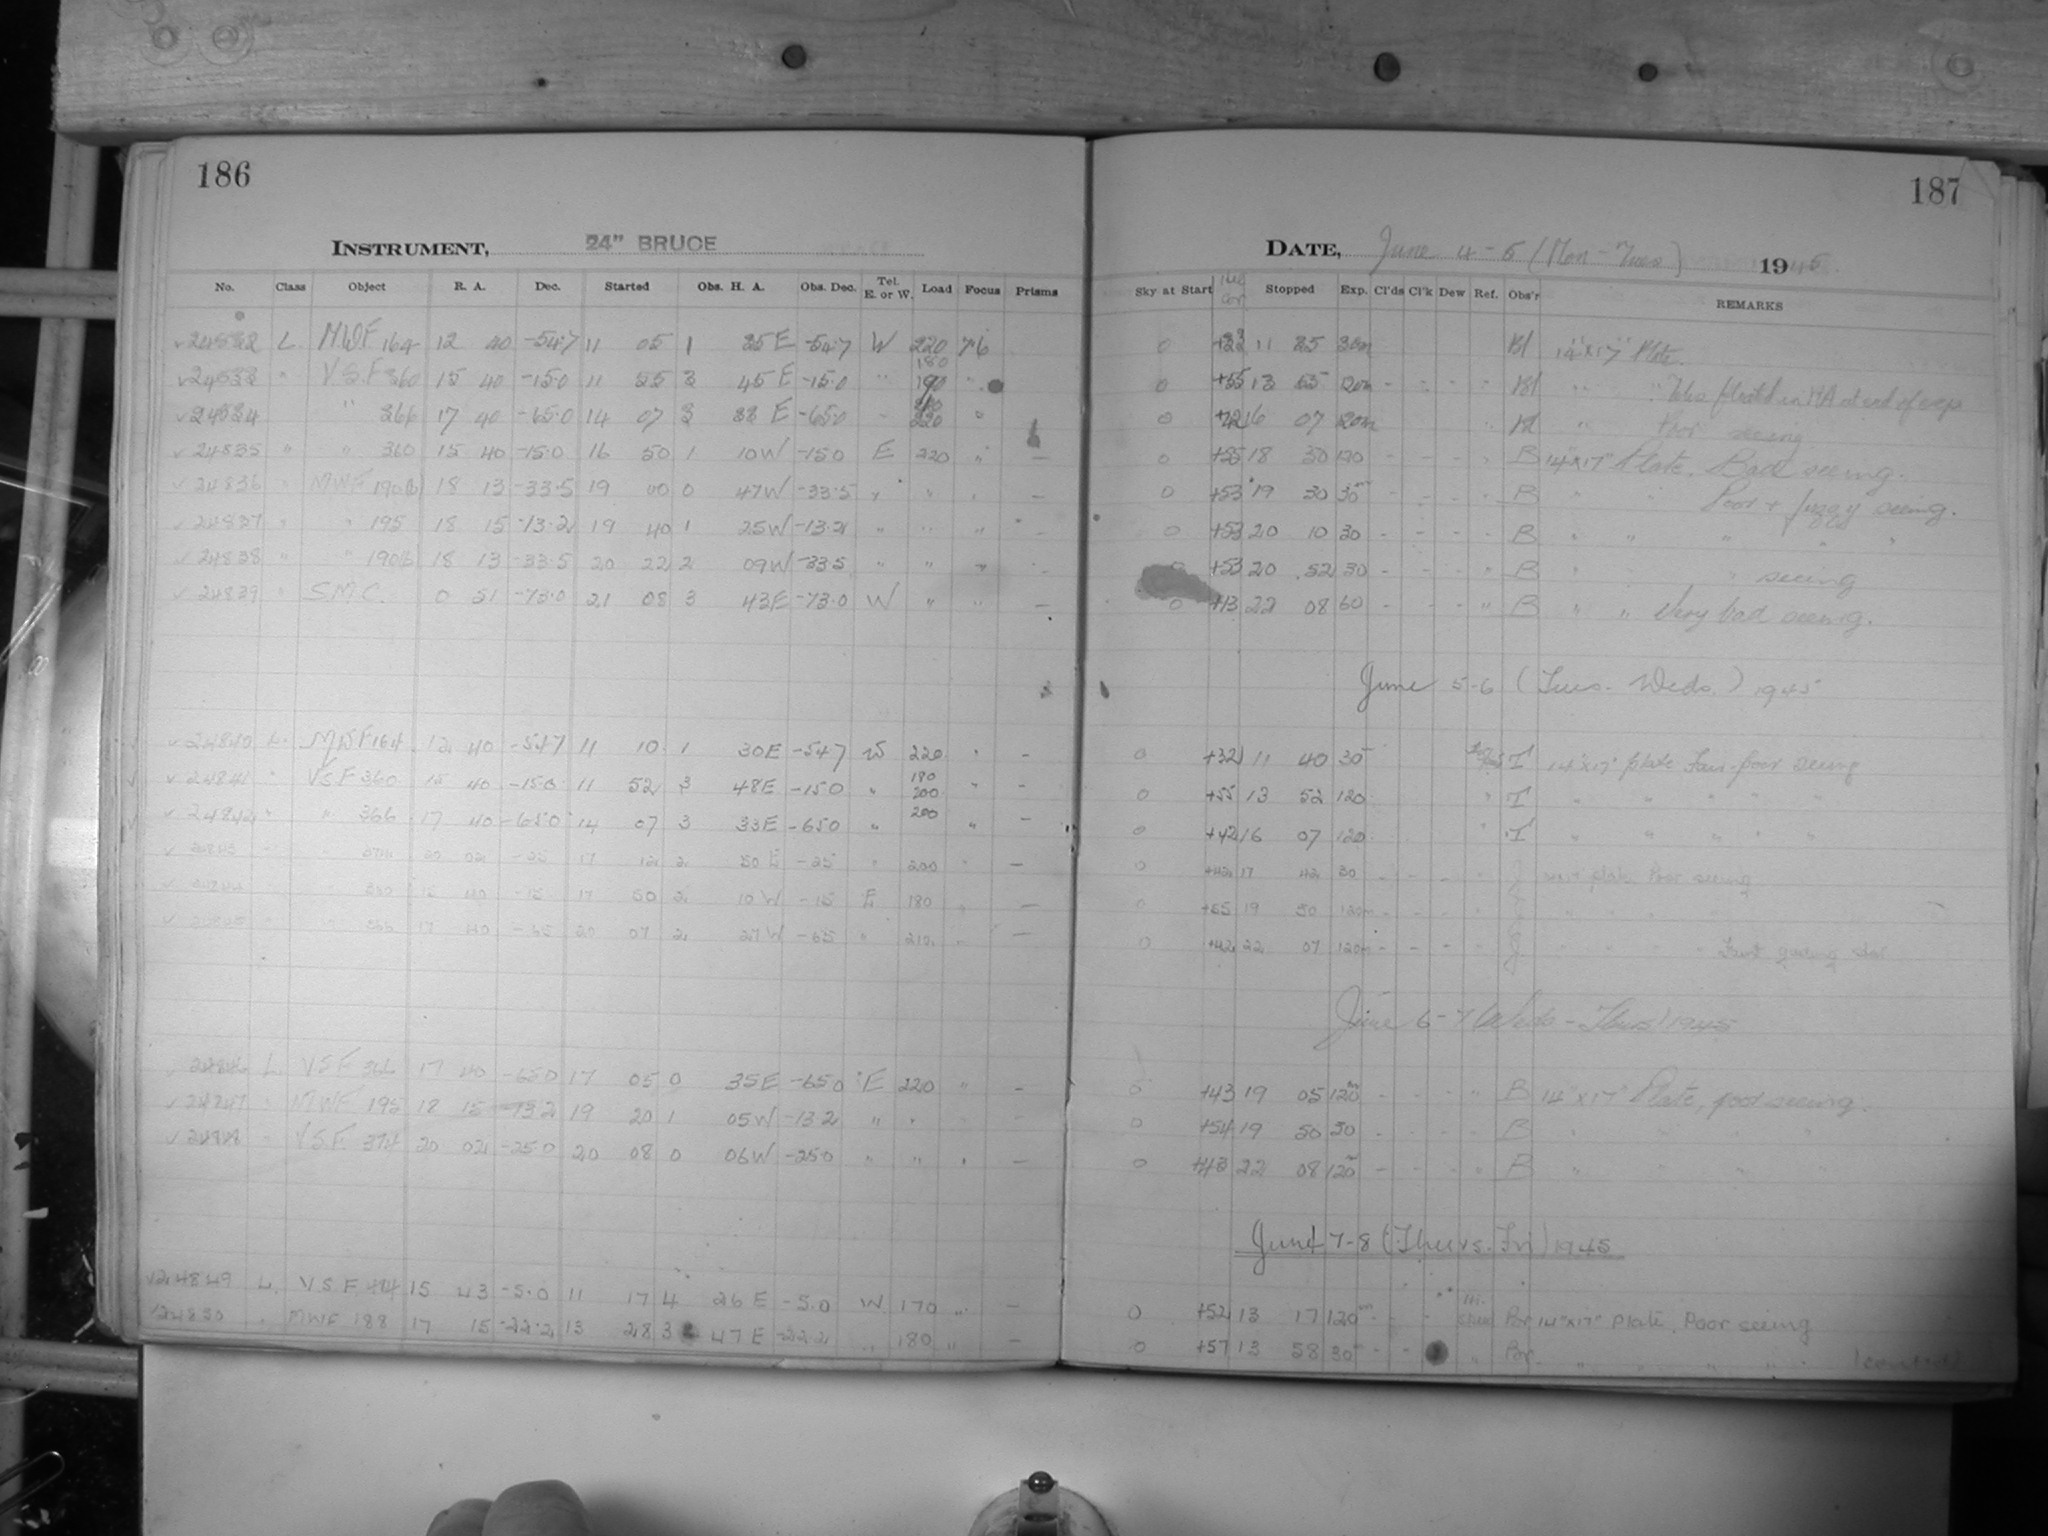 186
187
INSTRUMENT, 24" BRUCE
DATE, June 4-5 (Mon-Tues) 1945
No. Class Object R. A. Dec. Started Obs. H. A. Obs. Dec. Tel. E. or W. Load Focus Prisms
Sky at Start Stopped Exp. Cl'ds Cl'k Dew Ref. Obs'r REMARKS
24832 L MWF 164 12 40 -54.7 11 05 1 35E -54.7 W 220 7.6 0 11 35 30m Bl 14"x17" Plate.
24833 " VSF 360 15 40 -15.0 11 55 3 45E -15.0 " 0 +55 13 55 120m - Bl " "
24834 " 366 17 40 -65.0 14 07 3 33E -65.0 " 220 " 0 +42 16 07 120m " Bl " Poor seeing
24835 " " 360 15 40 -15.0 16 50 1 10W -15.0 E 220 " - 0 +55 18 50 120 - - - " B 14"x17" Plate, Bad seeing.
24836 " MWF 190(b) 18 13 -33.5 19 00 0 47W -33.5 " " " - 0 +53 19 30 30m - - - " B " " Poor + fuzzy seeing.
24837 " " 195 18 15 -13.2 19 40 1 25W -13.2 " " " - 0 +53 20 10 30 - - - - B " " " " "
24838 " " 190b 18 13 -33.5 20 22 2 09W -33.5 " " " - +53 20 52 30 - - - " B " " " seeing
24839 " S.M.C. 0 51 -73.0 21 08 3 43E -73.0 W " " - 0 +13 22 08 60 - - - " B " " Very bad seeing.
June 5-6 (Tues.-Weds.) 1945
24840 L. MWF 164 12 40 -54.7 11 10 1 30E -54.7 W 220 " - 0 +32 11 40 30m T 14"x17" plate Fair-poor seeing
24841 " VSF 360 15 40 -15.0 11 52 3 48E -15.0 " 180 200 " - 0 +55 13 52 120 " T " " " " "
24842 " " 366 17 40 -65.0 14 07 3 33E -65.0 " 200 " - 0 +42 16 07 120 " T " " " " "
24843 " " 374 20 02 -25 17 12 2 50E -25 " 200 " - 0 +42 17 42 30 - - - " J plate Poor seeing
24844 " " 360 15 40 -15 17 50 2 10W -15 E 180 " - 0 +55 19 50 120m - - - " J
24845 " " 366 17 40 -65 20 07 2 27W -65 " 210 " - 0 +42 22 07 120m - - - " J " " " " Faint guiding star
June 6-7 (Weds-Thurs) 1945
24846 L. VSF 366 17 40 -65.0 17 05 0 35E -65.0 E 220 " - 0 +43 19 05 120m - - - " B 14"x17" Plate, poor seeing.
24847 " MWF 195 18 15 -13.2 19 20 1 05W -13.2 " " - 0 +54 19 50 30 - - - - B " " " "
24848 " VSF 374 20 02 -25.0 20 08 0 06W -25.0 " " " - 0 +43 22 08 120m - - - " B " " " "
June 7-8 (Thurs.-Fri) 1945
24849 L. VSF 15 43 -5.0 11 17 4 26E -5.0 W 170 " - 0 +52 13 17 120m - - - Por 14"x17" Plate, Poor seeing
24850 " MWF 188 17 15 -22.2 13 28 3 47E -22.2 " 180 " - 0 +57 13 58 30m - - " Por " " " "